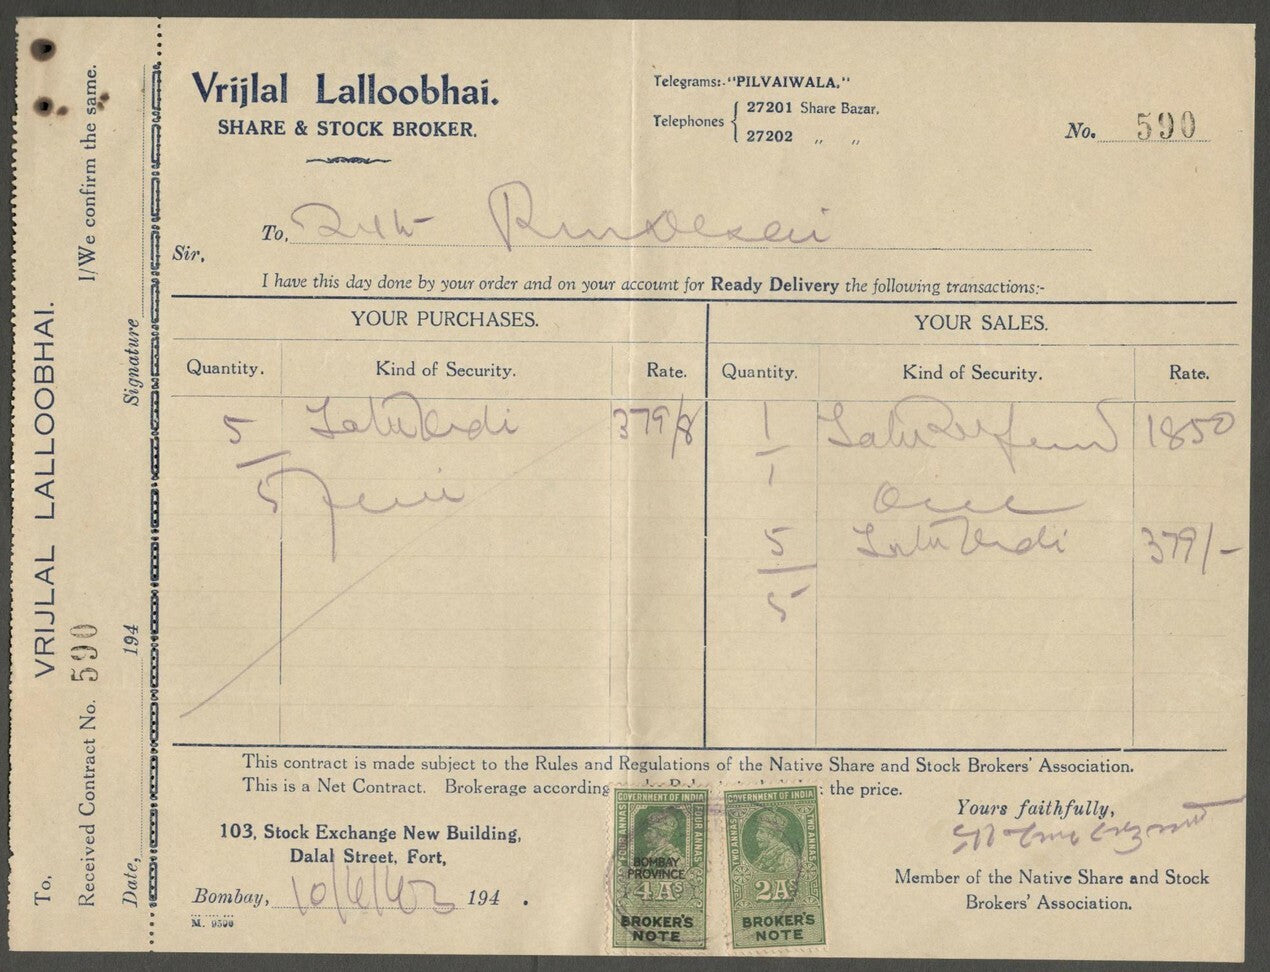 Vrijlal Lalloobhai.
SHARE & STOCK BROKER.
Telegrams:-"PILVAIWALA,"
Telephones { 27201 Share Bazar.
27202 " "
No. 590
To,
Sir,
I have this day done by your order and on your account for Ready Delivery the following transactions:-
YOUR PURCHASES. YOUR SALES.
Quantity. Kind of Security. Rate. Quantity. Kind of Security. Rate.
5 379/8 1 1850
5 1
5 379/-
5
This contract is made subject to the Rules and Regulations of the Native Share and Stock Brokers' Association.
This is a Net Contract. Brokerage according the price.
Yours faithfully,
103, Stock Exchange New Building,
Dalal Street, Fort,
Bombay, 194 .
M. 9590
Member of the Native Share and Stock
Brokers' Association.
GOVERNMENT OF INDIA
FOUR ANNAS
FOUR ANNAS
BOMBAY
PROVINCE
4 As
BROKER'S
NOTE
GOVERNMENT OF INDIA
TWO ANNAS
TWO ANNAS
2 As
BROKER'S
NOTE
To,
VRIJLAL LALLOOBHAI.
Received Contract No. 590 I/We confirm the same.
Date, 194 Signature